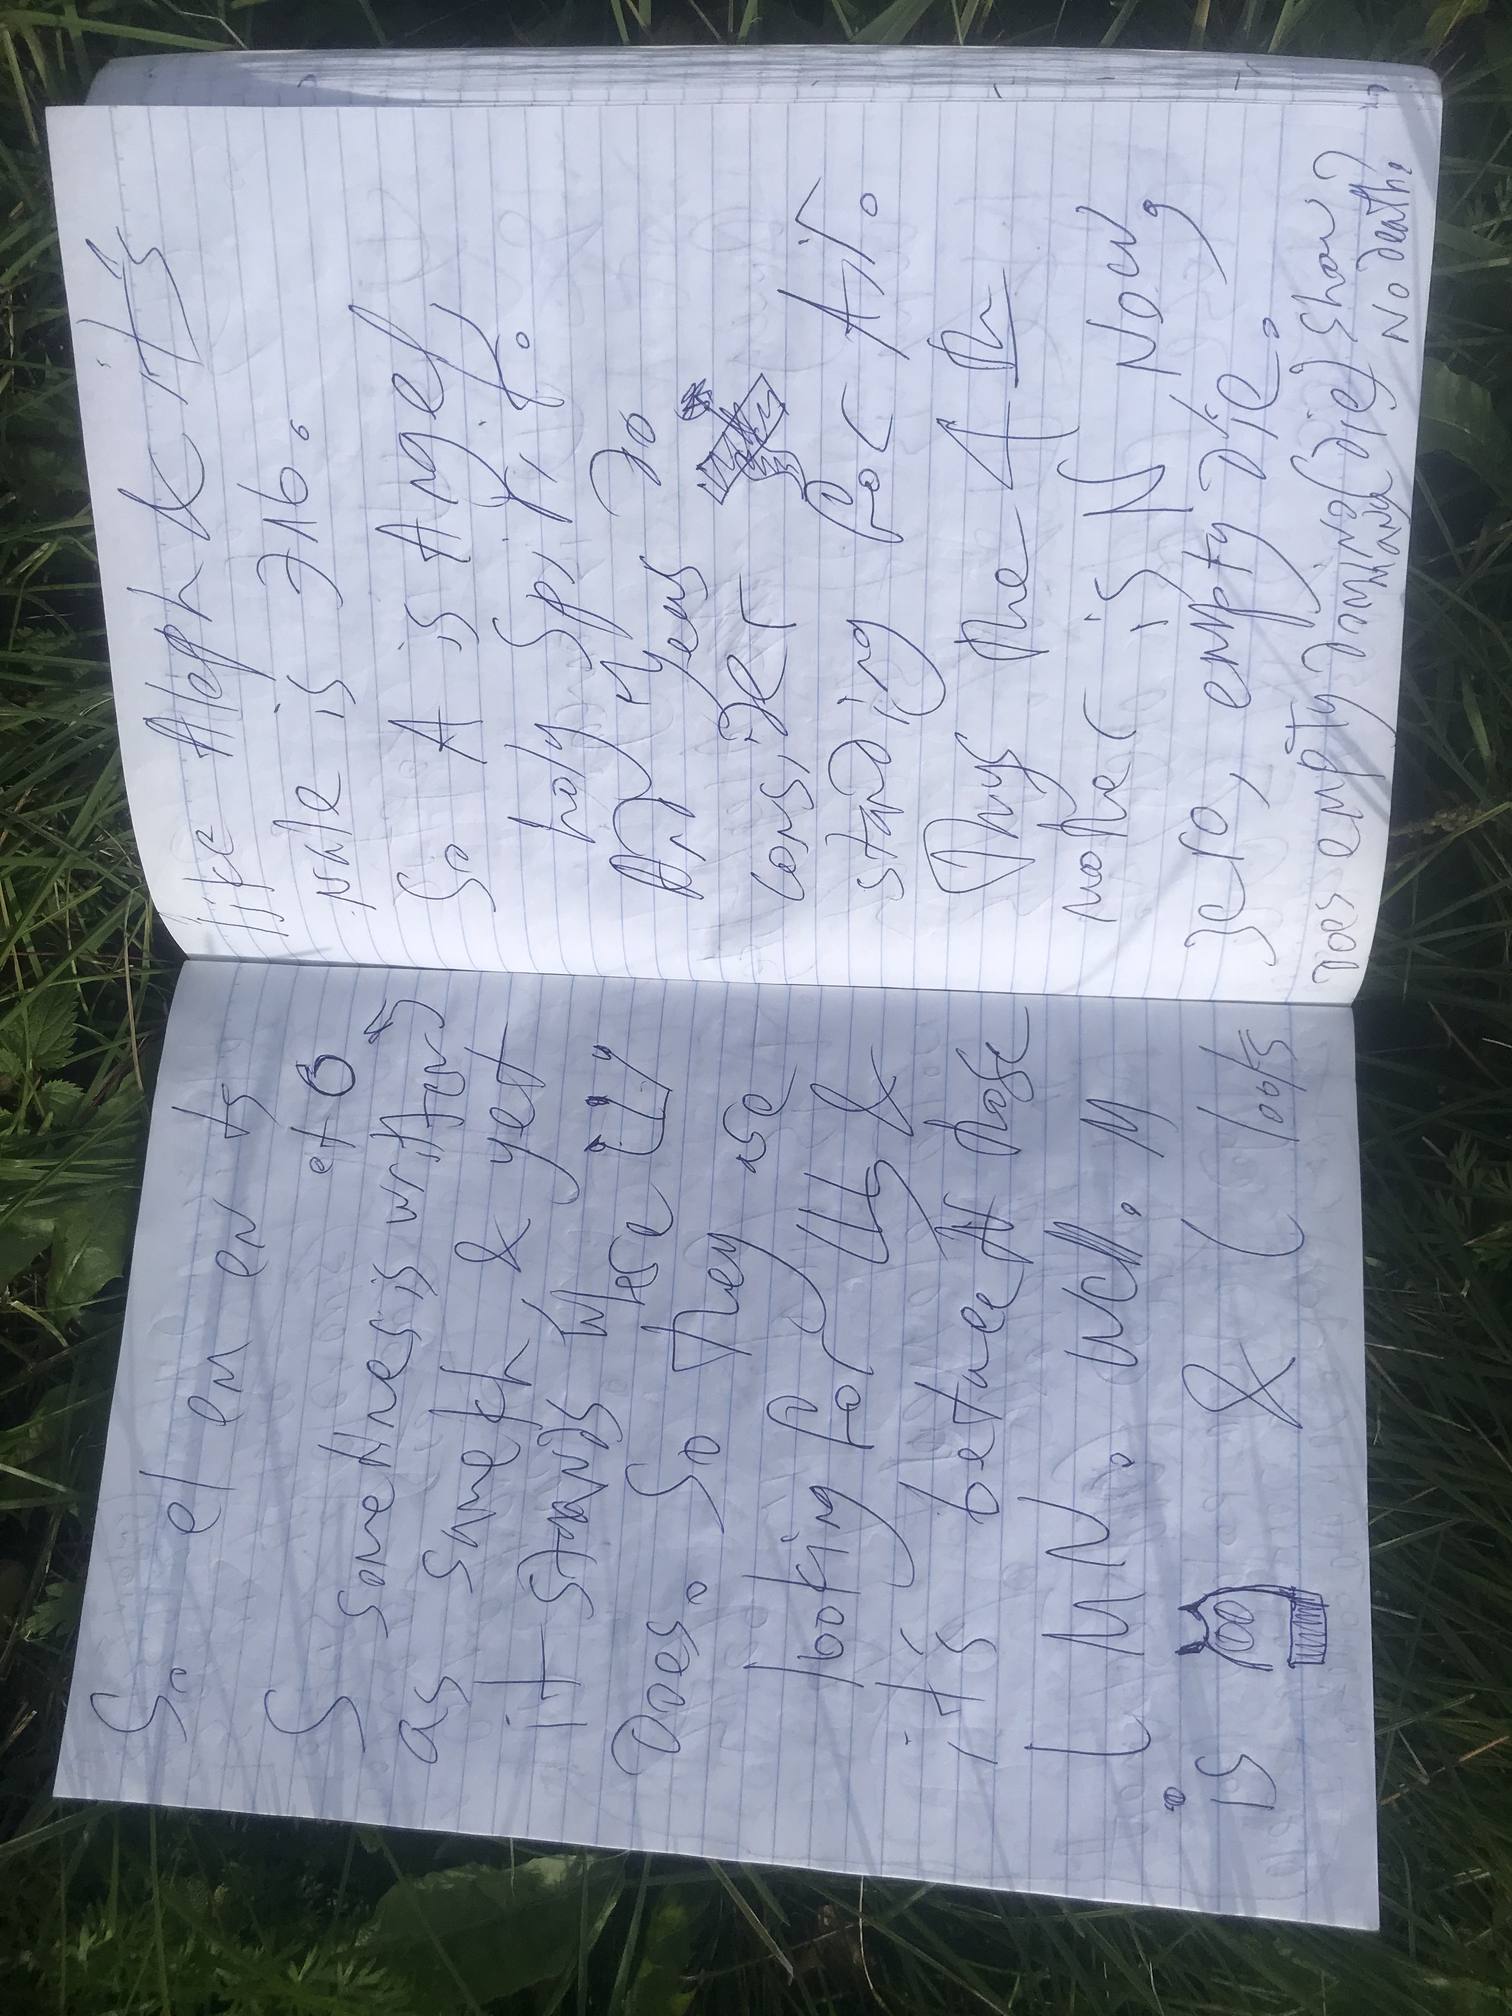 So el em en ts
et O
S sometimes is written
as same & yet
it stands here
Does. So they are
looking for Us &
it's between those
L M N. Well, M
is & L looks
like Aleph & it's
while is
So A is Angel
holy Spirit.
And yeus do
cons,der
standing for Air.
Thus the A
nother is N Now,
zero, empty die.
Does empty domino (die) show
No death,